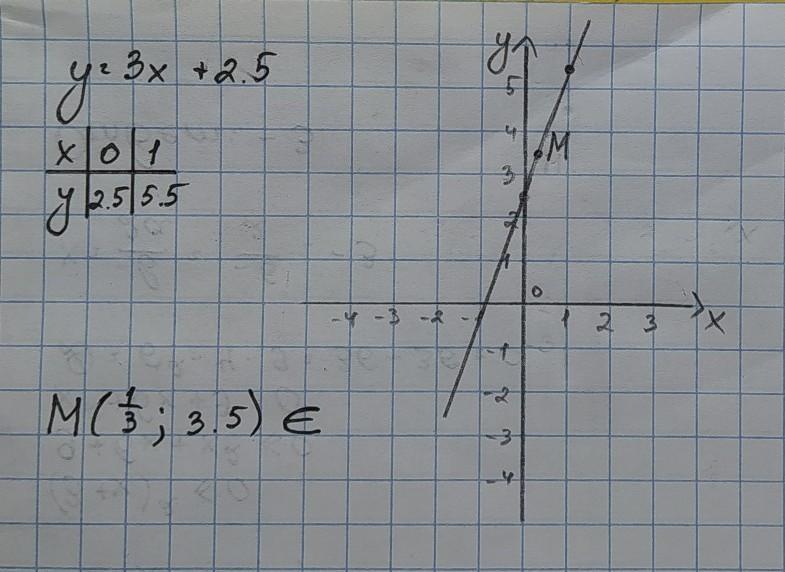 y = 3x + 2.5
x 0 1
y 2.5 5.5
M(1/3; 3.5) ∈
y
5
4
M
3
2
1
0
-4 -3 -2 -1 1 2 3 x
-1
-2
-3
-4